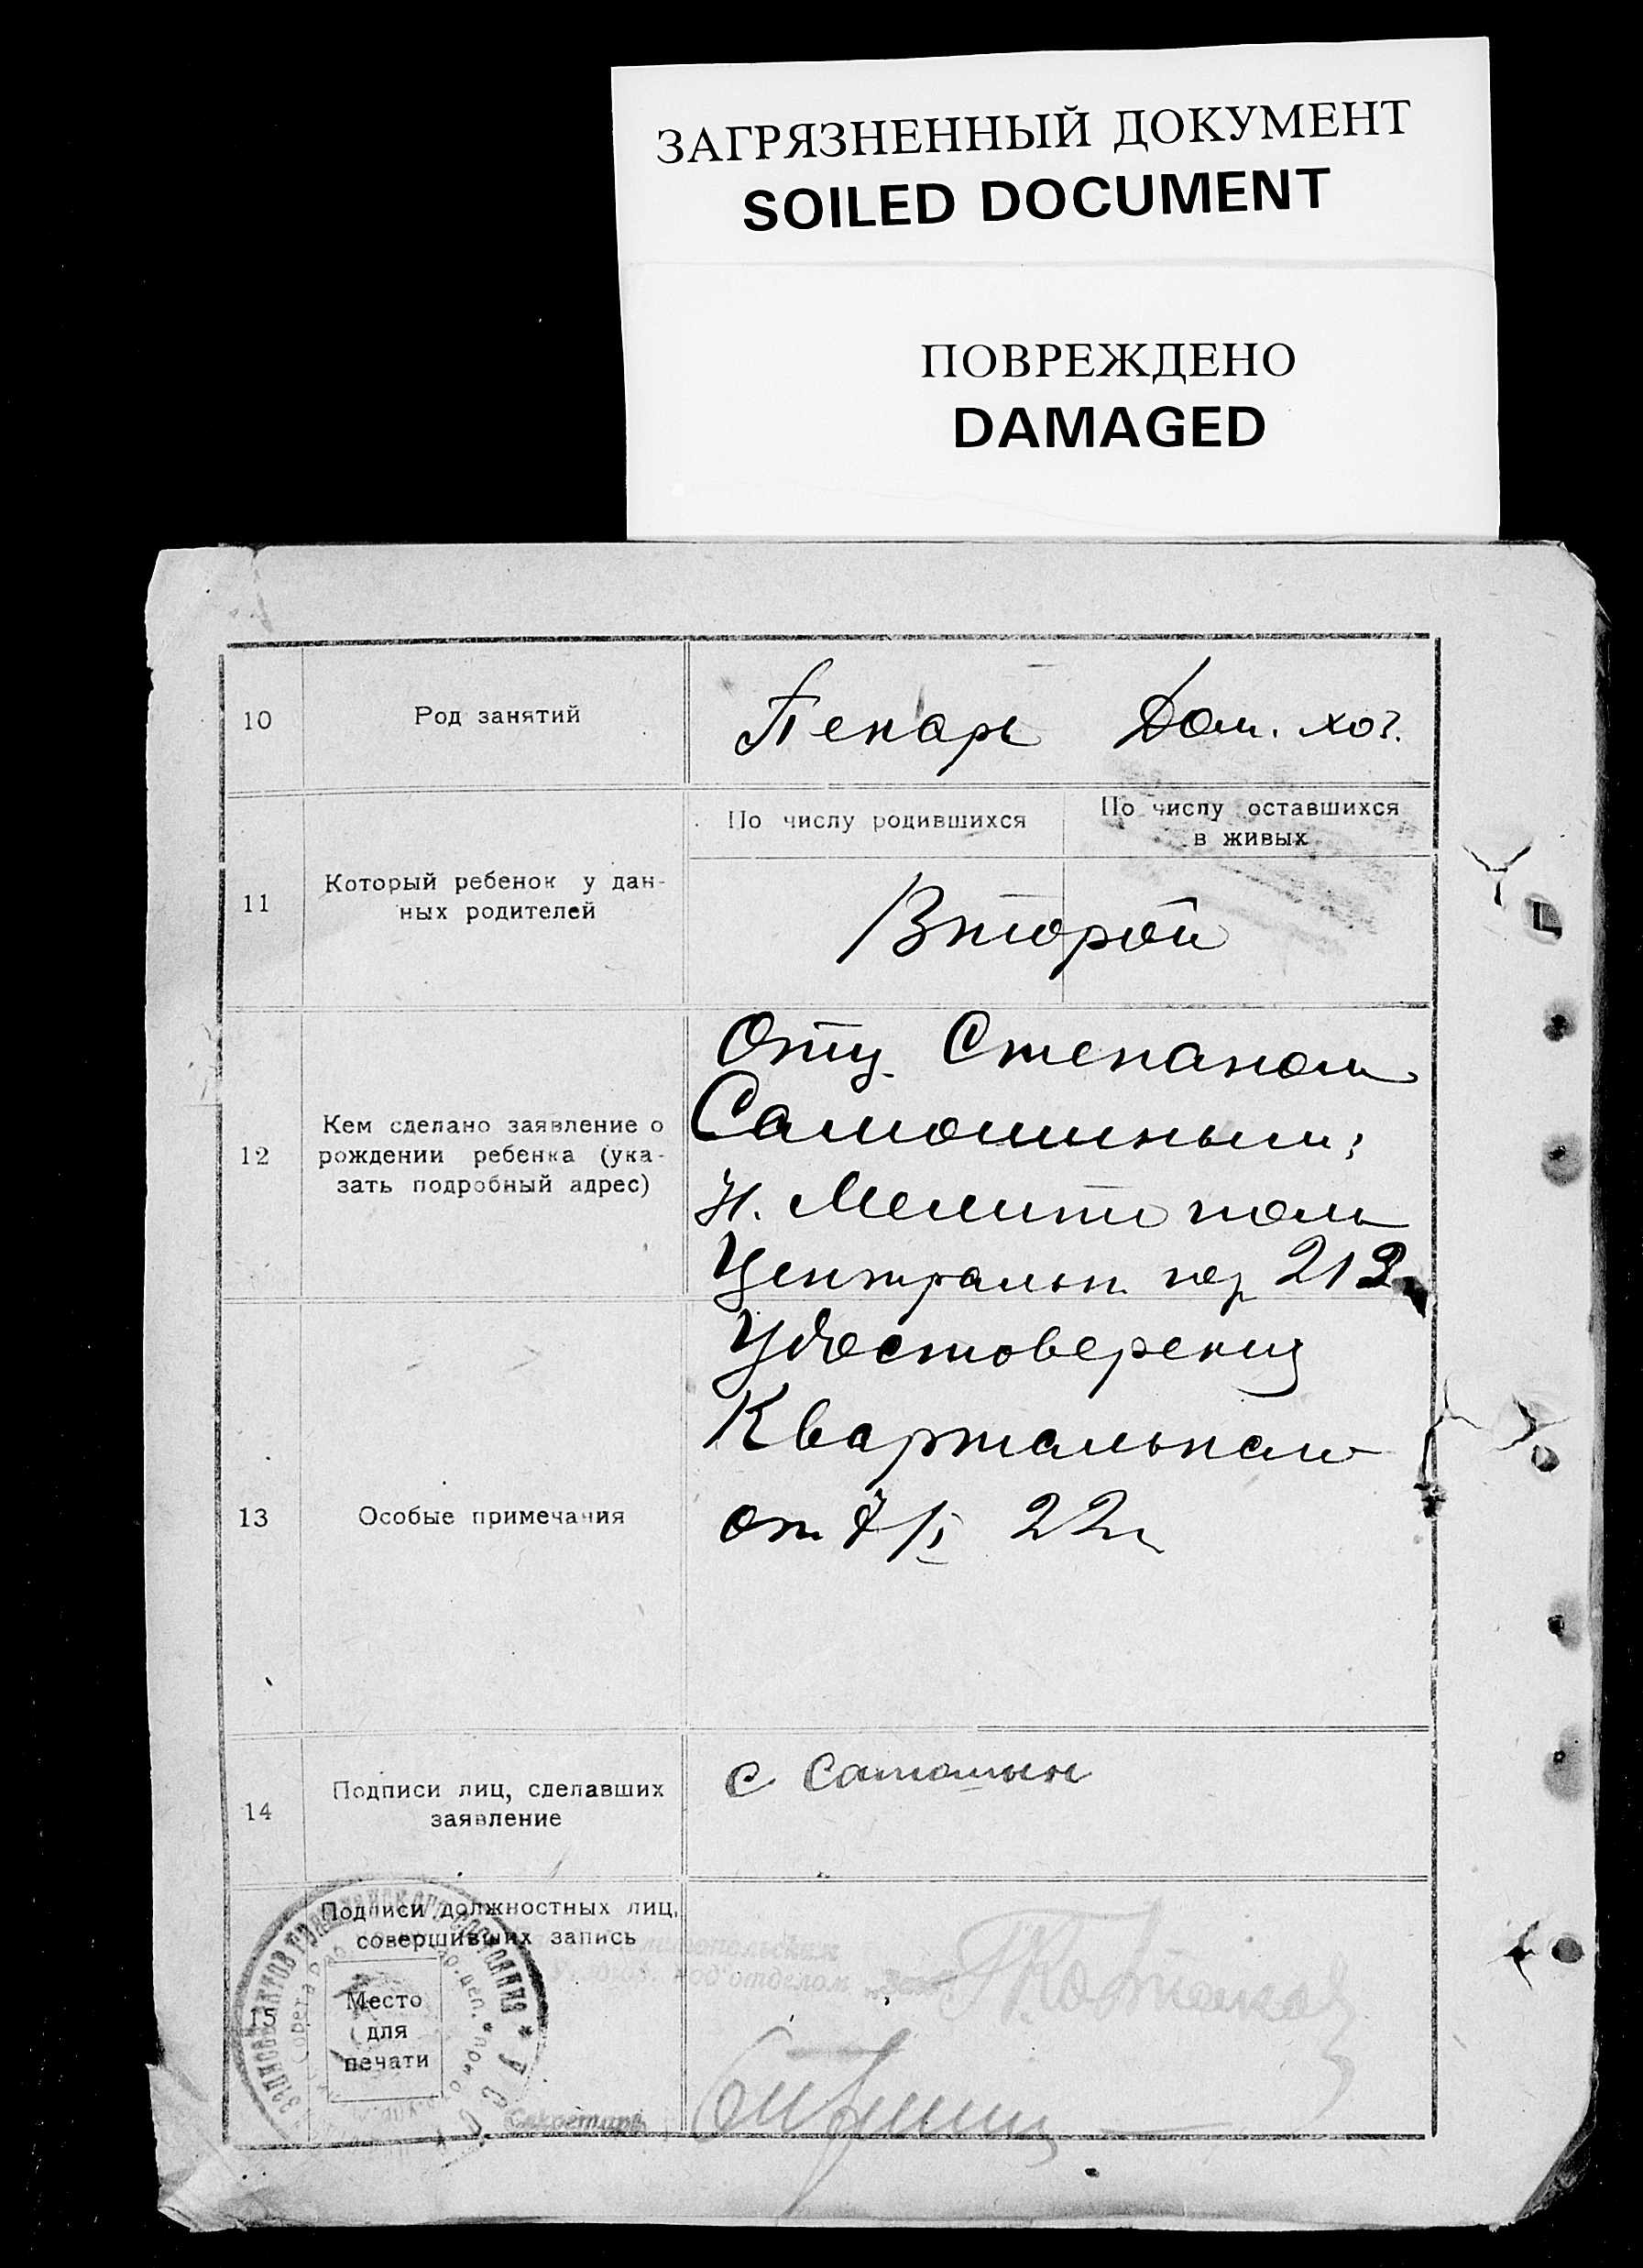 ЗАГРЯЗНЕННЫЙ ДОКУМЕНТ
SOILED DOCUMENT
ПОВРЕЖДЕНО
DAMAGED
10
Род занятий
Пекарь Дом. хоз.
11
Который ребенок у дан-
ных родителей
По числу родившихся
По числу оставшихся
в живых
Второй
12
Кем сделано заявление о
рождении ребенка (ука-
зать подробный адрес)
Отц. Степаном
Самошиным;
Н. Мелитополь
Центральн. пер 212
13
Особые примечания
Удостоверения
Квартальном
от 7/I 22
14
Подписи лиц, сделавших
заявление
С Самошын
15
Подписи должностных лиц,
совершивших запись
Место
для
печати
подотделом
Секретарь